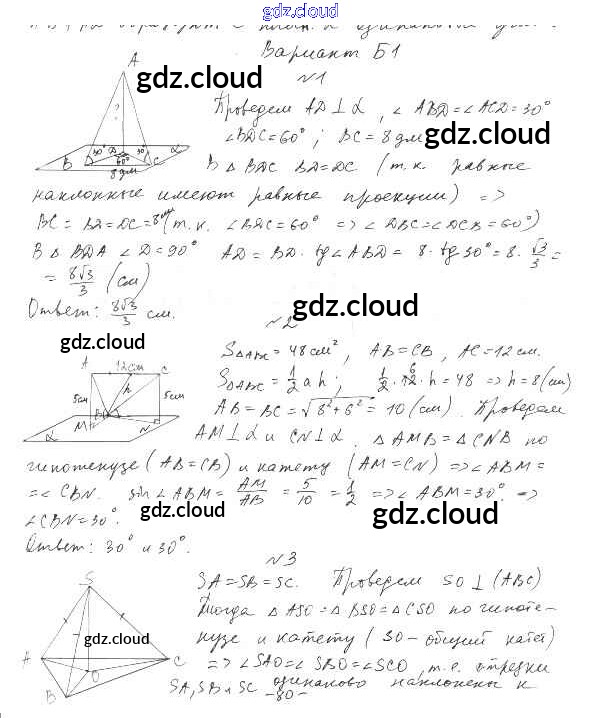 gdz.cloud
Вариант Б1
№1
Проведем AD ⊥ α, ∠ABD = ∠ACD = 30°
∠BDC = 60°; BC = 8 дм
В △BDC BD = DC (т.к. равные
наклонные имеют равные проекции) =>
BC = BD = DC = 8 дм (т.к. ∠BDC = 60° => ∠DBC = ∠DCB = 60°)
В △BDA ∠D = 90° AD = BD · tg∠ABD = 8 · tg 30° = 8 · √3/3 =
= 8√3/3 (см)
Ответ: 8√3/3 см.
A
?
30° D 30° α
B 60° C
8 дм
gdz.cloud
gdz.cloud
gdz.cloud
№2
S△ABC = 48 см², AB = CB, AC = 12 см.
S△ABC = 1/2 a h; 1/2 · 12 · h = 48 => h = 8 (см)
6
AB = BC = √8² + 6² = 10 (см). Проведем
AM ⊥ α и CN ⊥ α. △AMB = △CNB по
гипотенузе (AB = CB) и катету (AM = CN) => ∠ABM =
= ∠CBN. sin∠ABM = AM/AB = 5/10 = 1/2 => ∠ABM = 30°. =>
∠CBN = 30°.
Ответ: 30° и 30°.
gdz.cloud
A 12 см C
5 см h 5 см
M B N
α
gdz.cloud
gdz.cloud
gdz.cloud
№3
SA = SB = SC. Проведем SO ⊥ (ABC)
Тогда △ASO = △BSO = △CSO по гипоте-
нузе и катету (SO - общий катет)
=> ∠SAO = ∠SBO = ∠SCO, т.е. отрезки
SA, SB и SC одинаково наклонены к
S
A C
O
B
gdz.cloud
-80-